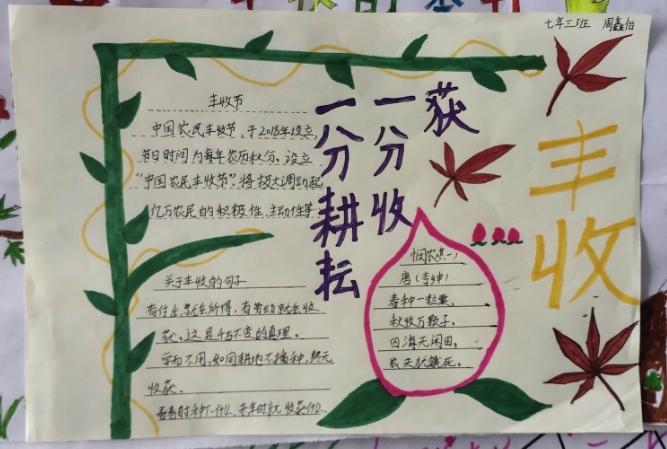 七年三班 周鑫怡
丰收
一分耕耘
一分收
获
丰收节
中国农民丰收节,于2018年设立,
节日时间为每年农历秋分。设立
“中国农民丰收节”,将极大调动起
亿万农民的积极性、主动性等
关于丰收的句子
有付出,就会所得,有劳动就会收
获,这是千古不变的真理。
学而不用,如同耕地不播种,终无
收获。
悯农(其一)
唐(李绅)
春种一粒粟,
秋收万颗子。
四海无闲田,
农夫犹饿死。